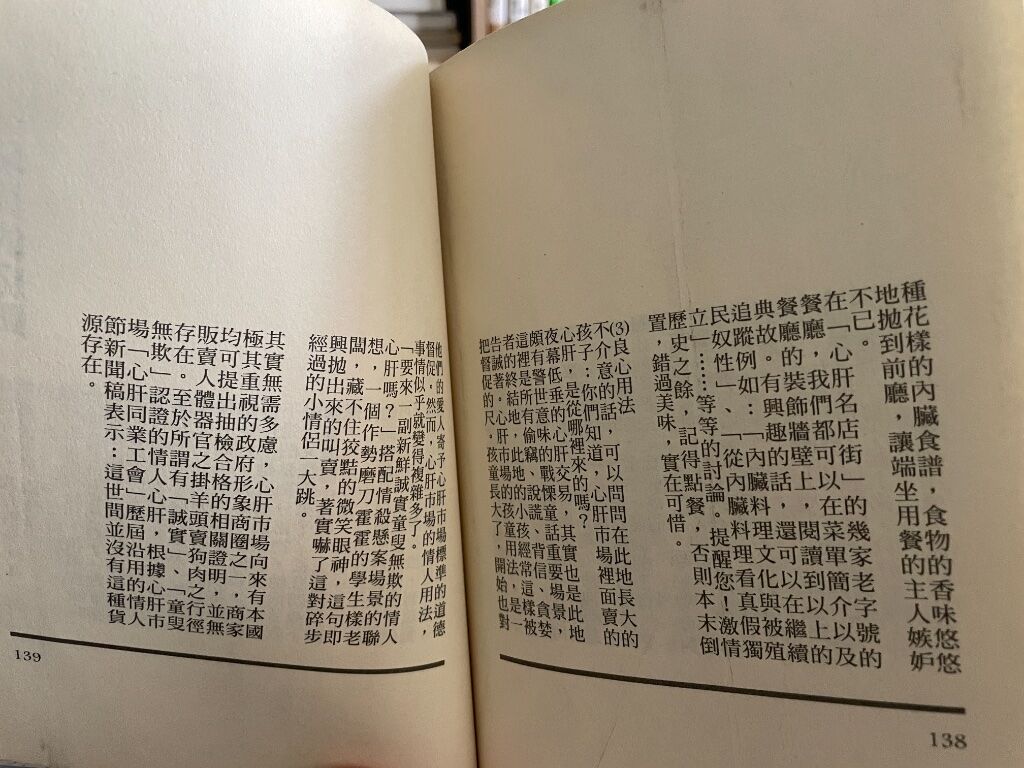 種花樣的內臟食譜，食物的香味悠悠
地拋到前廳，讓端坐用餐的主人嫉妒
不已。
在「心肝名店街」的幾家老字號的
餐廳，我們都可以在菜單簡介以及
餐廳的裝飾牆壁上，閱讀到以上的
典故。有興趣的話，還可以在繼續
追蹤例如：「內臟料理文化與被殖
民奴性」、「從內臟料理看真假獨
立」……等等的討論。提醒您！激情
歷史之餘，記得點餐，否則本末倒
置，錯過美味，實在可惜。
(3)良心用法
不介意的話，可以問問在此地長大的
孩子：你們知道，心肝市場裡面賣的
心肝，是從哪裡來的嗎？
夜幕低垂的心肝交易，其實也是此地
頗有警世意味的戰慄童話重要場景，
這裡是所有偷竊、說謊、背信、貪婪
者的終結地，此地的小孩經常這樣被
告誡著。心肝市場的孩童用法，是一
把督促的尺，孩童長大了，開始也對
138
他們的愛人寄予心肝市場標準的道德
督促，然而，心肝市場的情人用法，
事情似乎就變得複雜多了。
「要來一副新鮮誠實童叟無欺的情人
心肝嗎？」搭配情殺懸案場景的聯
想，一個作勢磨刀霍霍的學生樣老
闆，藏不住狡黠的微笑眼神，這句即
興拋出來的叫賣，著實嚇了這對碎步
經過的小情侶一大跳。
其實無需多慮，心肝市場向來有本國
極其重視的政府形象商圈之一，商家
均可提出抽檢合格的相關證明，並無
販賣人體器官之掛羊頭賣狗肉之行徑
存在。至於所謂有「誠實」、「童叟
無欺」認證的情人心肝，根據心肝市
場「心肝同業工會」歷屆沿用的情人
節新聞稿表示：這世間並沒有這種貨
源存在。
139